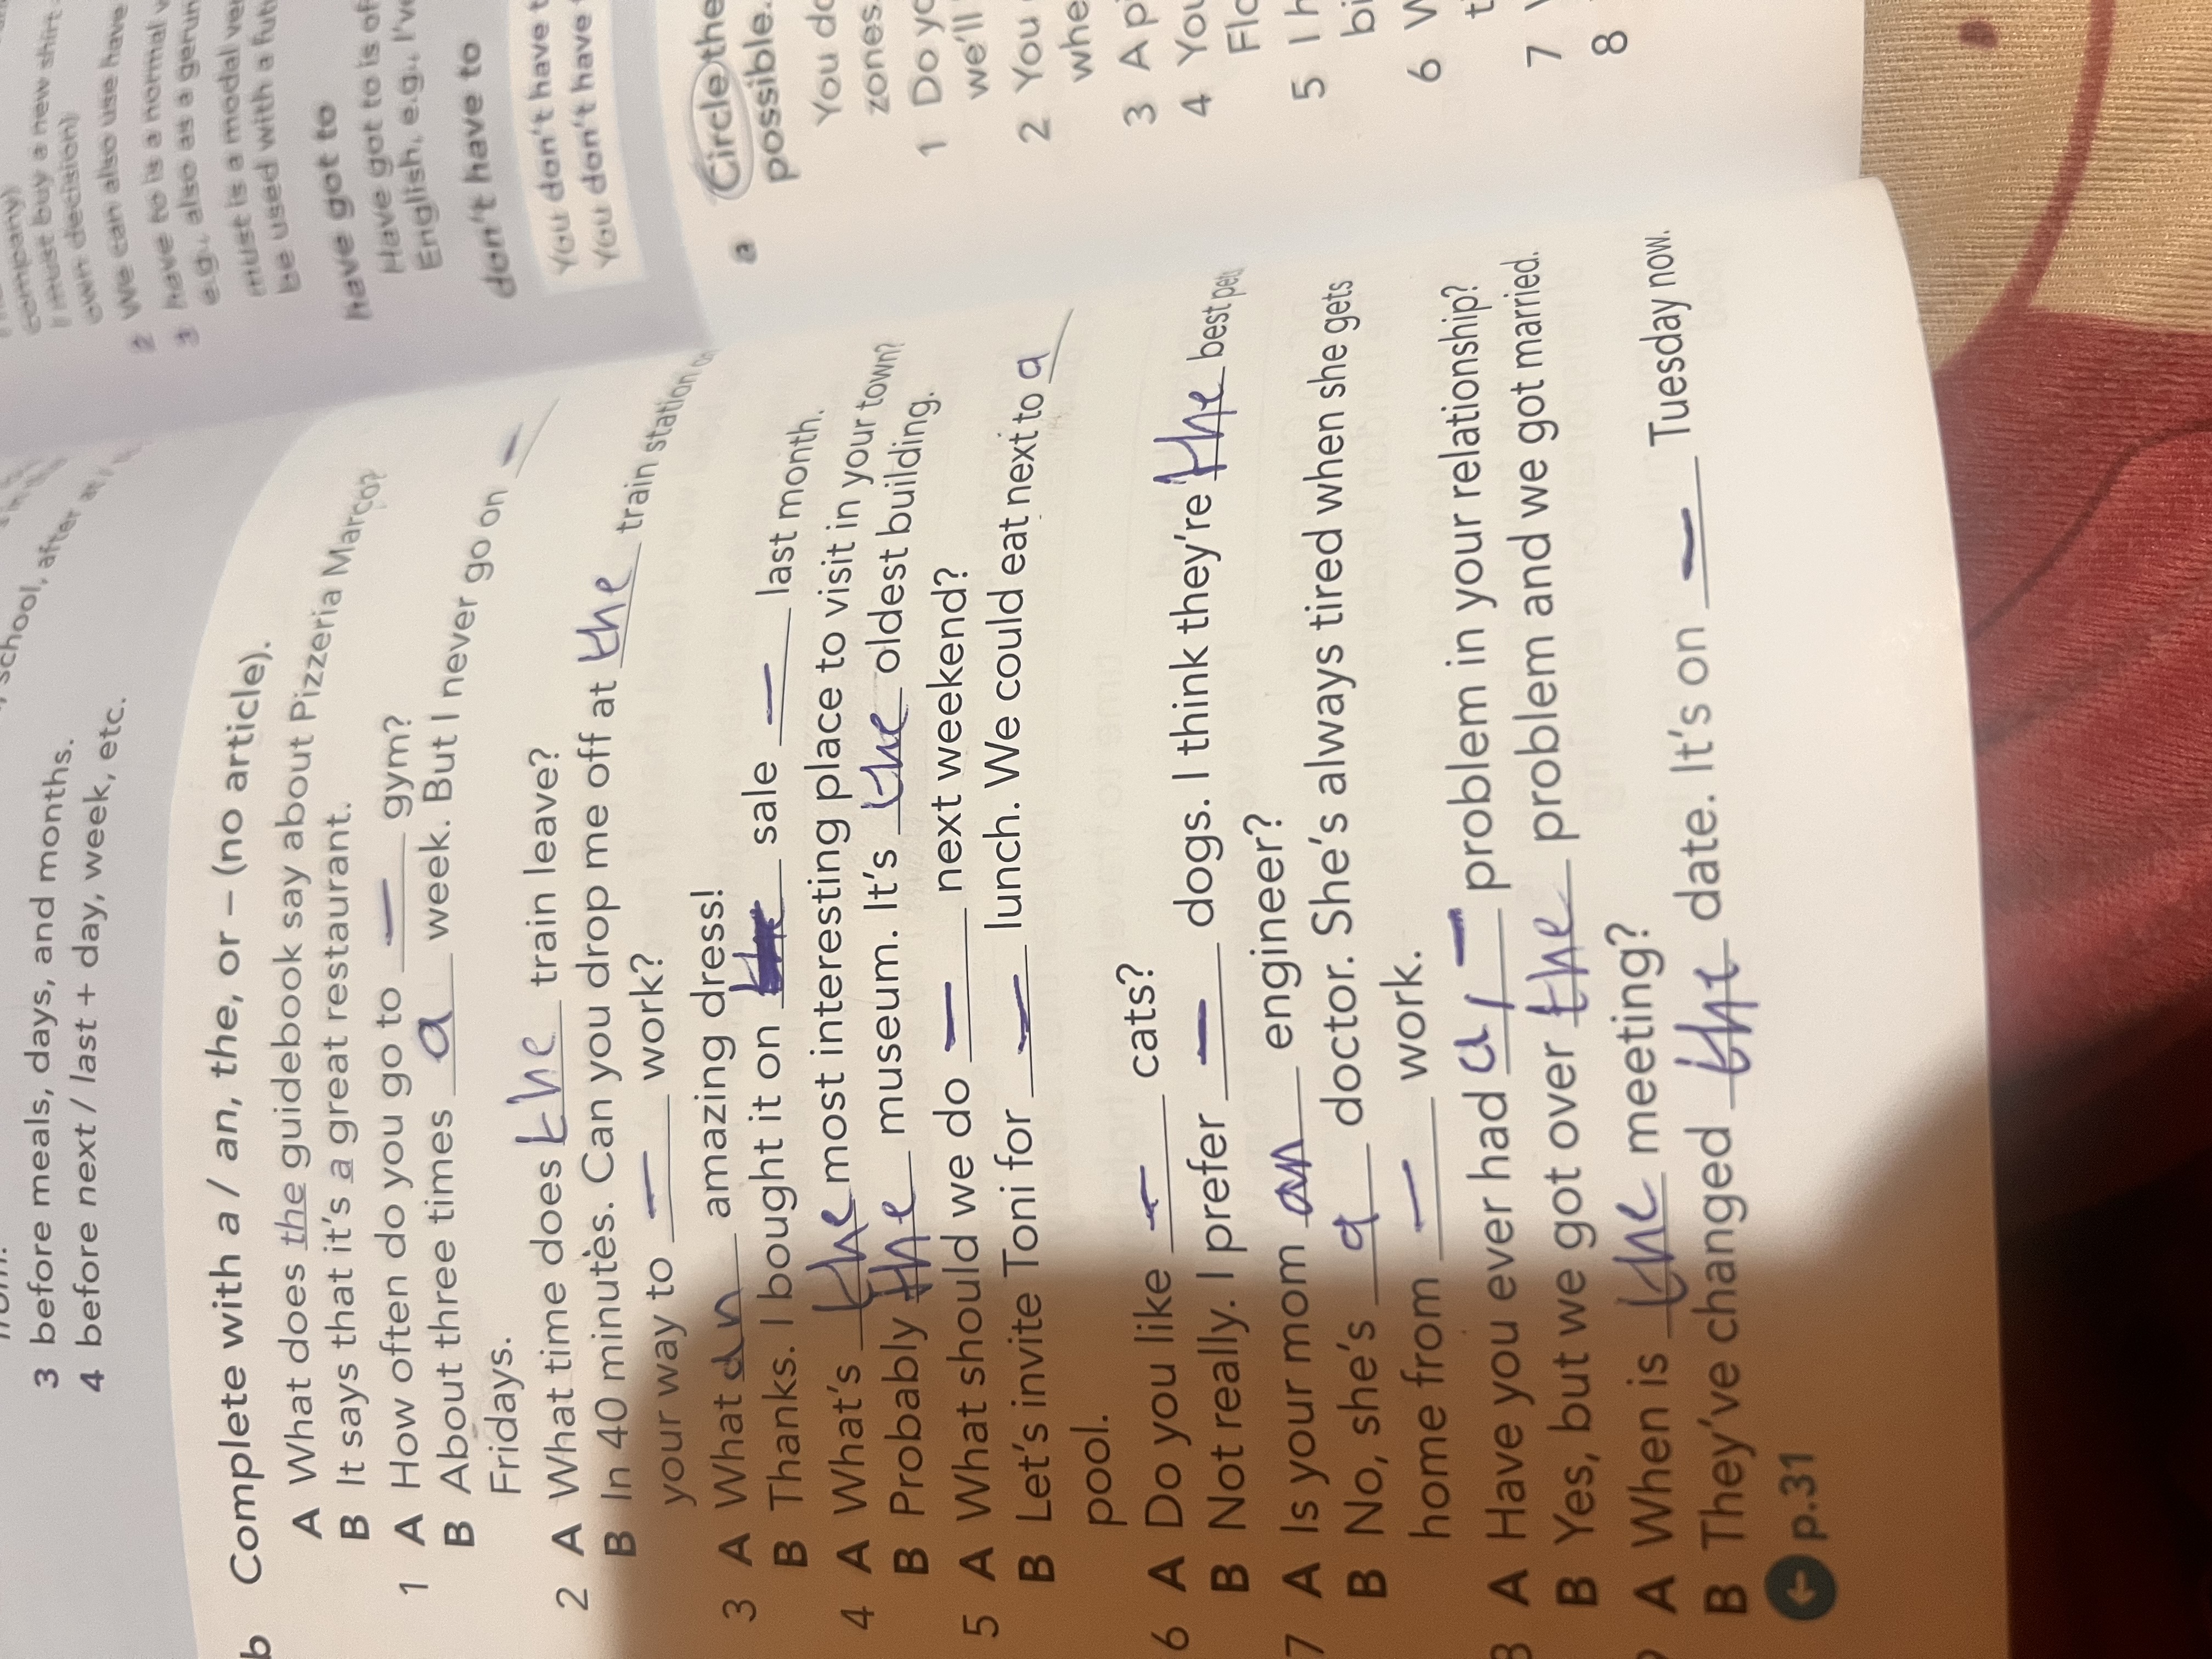 school, after
3 before meals, days, and months.
4 before next / last + day, week, etc.
b Complete with a / an, the, or – (no article).
A What does the guidebook say about Pizzeria Marco?
B It says that it's a great restaurant.
1 A How often do you go to – gym?
B About three times a week. But I never go on –
Fridays.
2 A What time does the train leave?
B In 40 minutes. Can you drop me off at the train station on
your way to – work?
3 A What an amazing dress!
B Thanks. I bought it on sale – last month.
4 A What's the most interesting place to visit in your town?
B Probably the museum. It's the oldest building.
5 A What should we do – next weekend?
B Let's invite Toni for – lunch. We could eat next to a
pool.
6 A Do you like – cats?
B Not really. I prefer – dogs. I think they're the best pets
7 A Is your mom an engineer?
B No, she's a doctor. She's always tired when she gets
home from – work.
8 A Have you ever had a / – problem in your relationship?
B Yes, but we got over the problem and we got married.
A When is the meeting?
B They've changed the date. It's on – Tuesday now.
p.31
company)
I must buy a new shirt
own decision)
2 We can also use have
3 have to is a normal
e.g., also as a gerun
must is a modal ver
be used with a futu
have got to
Have got to is of
English, e.g., I've
don't have to
You don't have t
You don't have
a Circle the
possible.
You do
zones.
1 Do yo
we'll
2 You
whe
3 A p
4 You
Flo
5 I h
bi
6 W
t
7
8